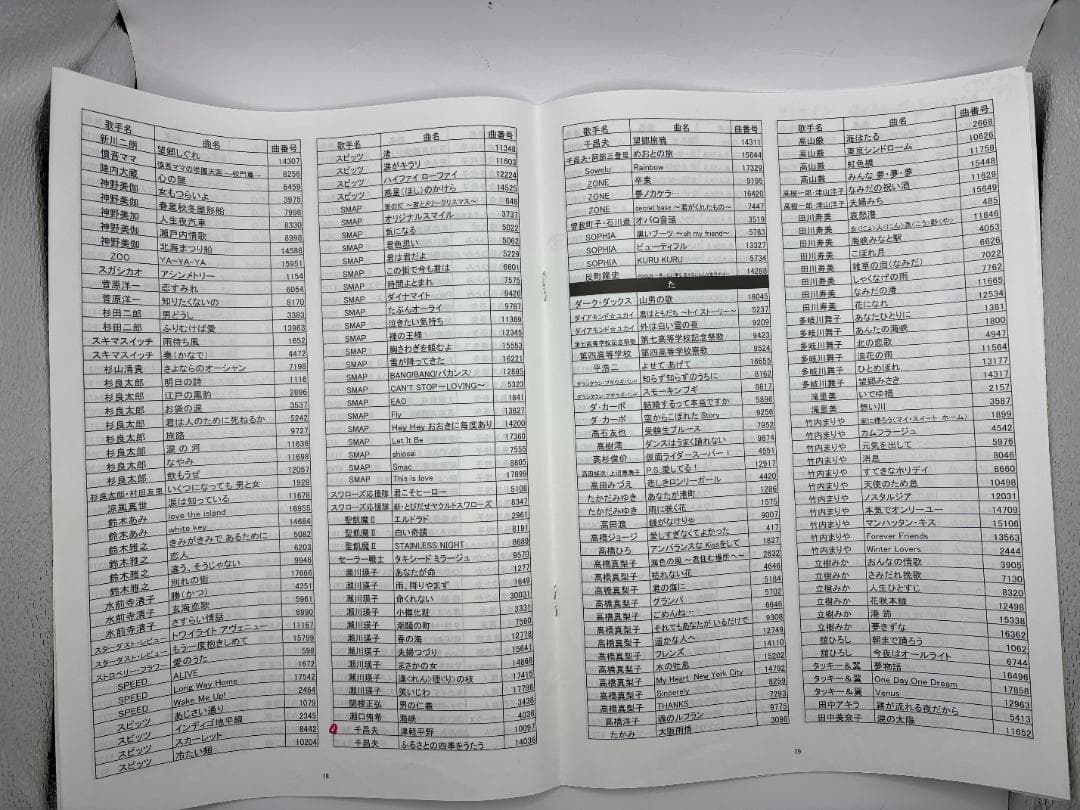 歌手名 曲名 曲番号
新川二朗 望郷しぐれ 14307
慎吾ママ 慎吾ママの学園天国~校門篇~ 8256
陣内大蔵 心の扉 6459
神野美伽 女もつらいよ 3975
神野美伽 春夏秋冬屋形船 7998
神野美加 人生夜汽車 8330
神野美伽 瀬戸内情歌 8998
神野美伽 北海まつり船 14586
ZOO YA-YA-YA 15951
スガシカオ アシンメトリー 1154
菅原洋一 恋すみれ 6054
菅原洋一 知りたくないの 8170
杉田二郎 男どうし 3383
杉田二郎 ふりむけば愛 13963
スキマスイッチ 雨待ち風 1652
スキマスイッチ 奏(かなで) 4472
杉山清貴 さよならのオーシャン 7199
杉良太郎 明日の詩 1116
杉良太郎 江戸の黒豹 2896
杉良太郎 お袋の涙 3537
杉良太郎 君は人のために死ねるか 5242
杉良太郎 旅路 9727
杉良太郎 涙の河 11636
杉良太郎 なやみ 11698
杉良太郎 飲もうぜ 12057
杉良太郎・村田友里 いくつになっても男と女 1928
涼風真世 涙は知っている 11678
鈴木あみ love the island 16955
鈴木あみ white key 14684
鈴木雅之 きみがきみであるために 5082
鈴木雅之 恋人 6203
鈴木雅之 違う、そうじゃない 9946
鈴木雅之 別れの街 17666
水前寺清子 勝(かつ) 4351
水前寺清子 玄海恋歌 5951
水前寺清子 さすらい情話 6990
スターダスト・レビュー トワイライト アヴェニュー 11167
スターダスト・レビュー もう一度抱きしめて 15799
ストロベリー・フラワー 愛のうた 598
SPEED ALIVE 1672
SPEED Long Way Home 17542
SPEED Wake Me Up! 2464
スピッツ あじさい通り 1079
スピッツ インディゴ地平線 2345
スピッツ スカーレット 8442
スピッツ 冷たい頬 10204
歌手名 曲名 曲番号
スピッツ 渚 11348
スピッツ 涙がキラリ 11603
スピッツ ハイファイ ローファイ 12224
スピッツ 惑星(ほし)のかけら 14525
SMAP ~君とメリークリスマス~ 648
SMAP オリジナルスマイル 3737
SMAP 気になる 5022
SMAP 君色思い 5062
SMAP 君は君だよ 5229
SMAP この街で今も君は 6601
SMAP 時間よとまれ 7575
SMAP ダイナマイト 9426
SMAP たぶんオーライ 9767
SMAP 泣きたい気持ち 11369
SMAP 裸の王様 12345
SMAP 胸さわぎを頼むよ 15553
SMAP 雪が降ってきた 16221
SMAP BANG!BANG!バカンス! 12895
SMAP CAN'T STOP~LOVING~ 5323
SMAP EAO 1841
SMAP Fly 13927
SMAP Hey Hey おおきに毎度あり 14200
SMAP Let It Be 17360
SMAP shiosai 7555
SMAP Smac 8805
SMAP This is love 17899
スワローズ応援隊 君こそヒーロー 5108
スワローズ応援隊 新・とびだせヤクルトスワローズ 8347
聖飢魔Ⅱ エルドラド 2961
聖飢魔Ⅱ 白い奇蹟 8191
聖飢魔Ⅱ STAINLESS NIGHT 8689
セーラー戦士 タキシード ミラージュ 9570
瀬川瑛子 あなたが命 1277
瀬川瑛子 雨、降りやまず 1649
瀬川瑛子 命くれない 30031
瀬川瑛子 小樽化粧 3331
瀬川瑛子 潮騒の町 7560
瀬川瑛子 春の海 12778
瀬川瑛子 夫婦つづり 15641
瀬川瑛子 まさかの女 14898
瀬川瑛子 連(れん)理(り)の枝 17415
瀬川瑛子 笑いじわ 17798
関根正弘 男の仁義 3438
瀬口侑希 海峡 4036
千昌夫 津軽平野 10097
千昌夫 ふるさとの四季をうたう 14036
18
歌手名 曲名 曲番号
千昌夫 望郷旅鴉 14311
千昌夫・阿部三登里 めおとの旅 15644
Sowelu Rainbow 17329
ZONE 卒業 9195
ZONE 夢ノカケラ… 16420
ZONE secret base ~君がくれたもの~ 7447
曽我町子・石川進 オバQ音頭 3519
SOPHIA 黒いブーツ ~oh my friend~ 5783
SOPHIA ビューティフル 13327
SOPHIA KURU KURU 5734
反町隆史 14288
た
ダーク・ダックス 山男の歌 16045
ダイアモンド☆ユカイ 君はともだち ~トイ・ストーリー~ 5237
ダイアモンド☆ユカイ 外は白い雪の夜 9209
第七高等学校記念祭歌 第七高等学校記念祭歌 9423
第四高等学校 第四高等学校寮歌 9524
平浩二 よせて あげて 16655
ダウンタウン・ブギウギ・バンド 知らず知らずのうちに 8162
ダウンタウン・ブギウギ・バンド スモーキンブギ 8817
ダ・カーポ 結婚するって本当ですか 5896
ダ・カーポ 空からこぼれた Story 9256
高石友也 受験生ブルース 7952
高樹澪 ダンスはうまく踊れない 9874
高杉俊价 仮面ライダースーパー1 4551
P.S.愛してる! 12917
高田みづえ 悲しきロンリーガール 4420
たかだみゆき あなたが港町 1286
たかだみゆき 雨に咲く花 1575
高田渡 銭がなけりゃ 9007
高橋ジョージ 愛しすぎなくてよかった 417
高橋ひろ アンバランスな Kissをして 1827
高橋真梨子 海色の風 ~君住む場所へ~ 2632
高橋真梨子 枯れない花 4646
高橋真梨子 君の海に 5184
高橋真梨子 グランパ 5702
高橋真梨子 ごめんね… 6646
高橋真梨子 それでもあなたがいるだけで 9308
高橋真梨子 遥かな人へ 12749
高橋真梨子 フレンズ 14110
高橋真梨子 水の吐息 15202
高橋真梨子 My Heart New York City 14792
高橋真梨子 Sincerely 8259
高橋真梨子 THANKS 7293
高橋洋子 魂のルフラン 9775
たかみ 大阪雨情 3090
歌手名 曲名 曲番号
高山厳 海ほたる 2668
高山厳 東京シンドローム 10626
高山厳 虹色橋 11759
高山厳 みんな 夢・夢・夢 15448
高樹一郎・津山洋子 なみだの祝い酒 11629
高樹一郎・津山洋子 夫婦みち 15649
田川寿美 哀愁港 485
田川寿美 11846
田川寿美 海峡みなと駅 4053
田川寿美 こぼれ月 6626
田川寿美 雑草の雨(なみだ) 7022
田川寿美 しゃくなげの雨 7762
田川寿美 なみだの港 11665
田川寿美 花になれ 12534
多岐川舞子 あなたひとりに 1381
多岐川舞子 あんたの海峡 1800
多岐川舞子 北の恋歌 4947
多岐川舞子 浪花の雨 11564
多岐川舞子 ひとめぼれ 13177
多岐川舞子 望郷みさき 14317
滝里美 いで湯橋 2157
滝里美 想い川 3587
竹内まりや 家に帰ろう(マイ・スイート・ホーム) 1899
竹内まりや カムフラージュ 4542
竹内まりや 元気を出して 5976
竹内まりや 消息 8046
竹内まりや すてきなホリデイ 8660
竹内まりや 天使のため息 10498
竹内まりや ノスタルジア 12031
竹内まりや 本気でオンリーユー 14709
竹内まりや マンハッタン・キス 15106
竹内まりや Forever Friends 13563
竹内まりや Winter Lovers 2444
立樹みか おんなの情歌 3905
立樹みか さみだれ挽歌 7130
立樹みか 人生ひとすじ 8320
立樹みか 花咲本線 12498
立樹みか 港 節 15338
立樹みか 夢きずな 16362
舘ひろし 朝まで踊ろう 1062
舘ひろし 今夜はオールライト 6744
タッキー&翼 夢物語 16496
タッキー&翼 One Day,One Dream 17858
タッキー&翼 Venus 12963
田中アキラ 霧が流れる夜だから 5413
田中美奈子 涙の太陽 11652
19